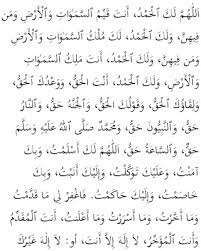 اَللَّهُمَّ لَكَ الْحَمْدُ، أَنتَ قَيِّمُ السَّمَوَاتِ وَالْأَرْضِ وَمَن
فِيهِنَّ، وَلَكَ الْحَمْدُ، لَكَ مُلْكُ السَّمَوَاتِ وَالْأَرْضِ
وَمَن فِيهِنَّ، وَلَكَ الْحَمْدُ، أَنتَ مَلِكُ السَّمَوَاتِ
وَالْأَرْضِ، وَلَكَ الْحَمْدُ، أَنْتَ الْحَقُّ، وَوَعْدُكَ الْحَقُّ،
وَلِقَاؤُكَ الْحَقُّ، وَقَوْلُكَ الْحَقُّ، وَالْجَنَّةُ حَقٌّ، وَالنَّارُ
حَقٌّ، وَالنَّبِيُّونَ حَقٌّ، وَمُحَمَّدٌ صَلَّى اللهُ عَلَيْهِ وَسَلَّمَ
حَقٌّ، وَالسَّاعَةُ حَقٌّ، اللَّهُمَّ لَكَ أَسْلَمْتُ، وَبِكَ
آمَنْتُ، وَعَلَيْكَ تَوَكَّلْتُ، وَإِلَيْكَ أَنَبْتُ، وَبِكَ
خَاصَمْتُ، وَإِلَيْكَ حَاكَمْتُ. فَاغْفِرْ لِي مَا قَدَّمْتُ
وَمَا أَخَّرْتُ، وَمَا أَسْرَرْتُ وَمَا أَعْلَنْتُ، أَنْتَ الْمُقَدِّمُ
وَأَنْتَ الْمُؤَخِّرُ، لَا إِلَهَ إِلَّا أَنتَ، أَو: لَا إِلَهَ غَيْرُكَ